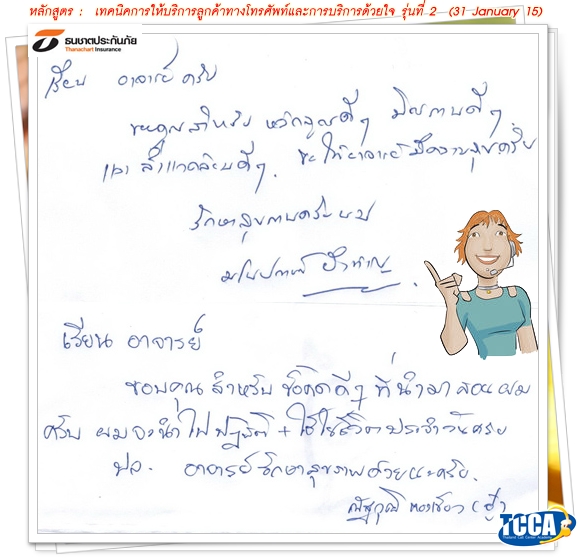 หลักสูตร : เทคนิคการให้บริการลูกค้าทางโทรศัพท์และการบริการด้วยใจ รุ่นที่ 2 (31 January 15)
ธนชาตประกันภัย
Thanachart Insurance
เรียน อาจารย์ ครับ
ขอบคุณสำหรับ หลักสูตรดีๆ มิตรภาพดีๆ
และ สิ่งแวดล้อมดีๆ. ขอให้อาจารย์มีความสุขครับ
รักษาสุขภาพครับผม
เรียน อาจารย์
ขอบคุณ สำหรับ ข้อคิดดีๆ ที่นำมาสอนผม
ครับ ผมจะนำไปปฏิบัติ + ใช้ในชีวิตประจำวันครับ
ปล. อาจารย์รักษาสุขภาพด้วยนะครับ.
TCCA
Thailand Call Center Academy